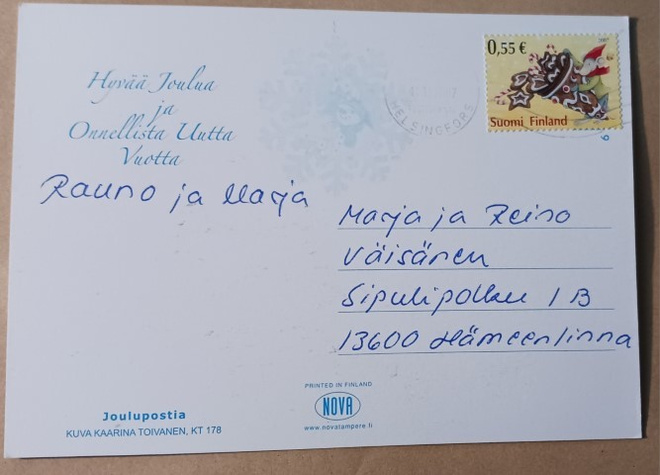 Hyvää Joulua
ja
Onnellista Uutta
Vuotta
Rauno ja Marja
0,55 €
2007
Suomi Finland
HELSINGFORS
Marja ja Reino
Väisänen
Sipulipolku 1 B
13600 Hämeenlinna
PRINTED IN FINLAND
NOVA
www.novalampere.fi
Joulupostia
KUVA KAARINA TOIVANEN, KT 178